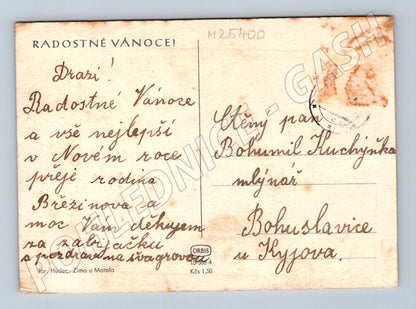 RADOSTNÉ VÁNOCE!
M25400
Drazí!
Radostné Vánoce
a vše nejlepší
v Novém roce
přeje rodina
Březinova a
moc Vám děkujem
za zabijačku
a pozdrav na švagrovou
Jar. Hůdec: Zima u Motola
ORBIS
Kčs 1,50
Ctěný pan
Bohumil Kuchyňka
mlýnář
Bohuslavice
u Kyjova.
POHLEDNICE - GASH